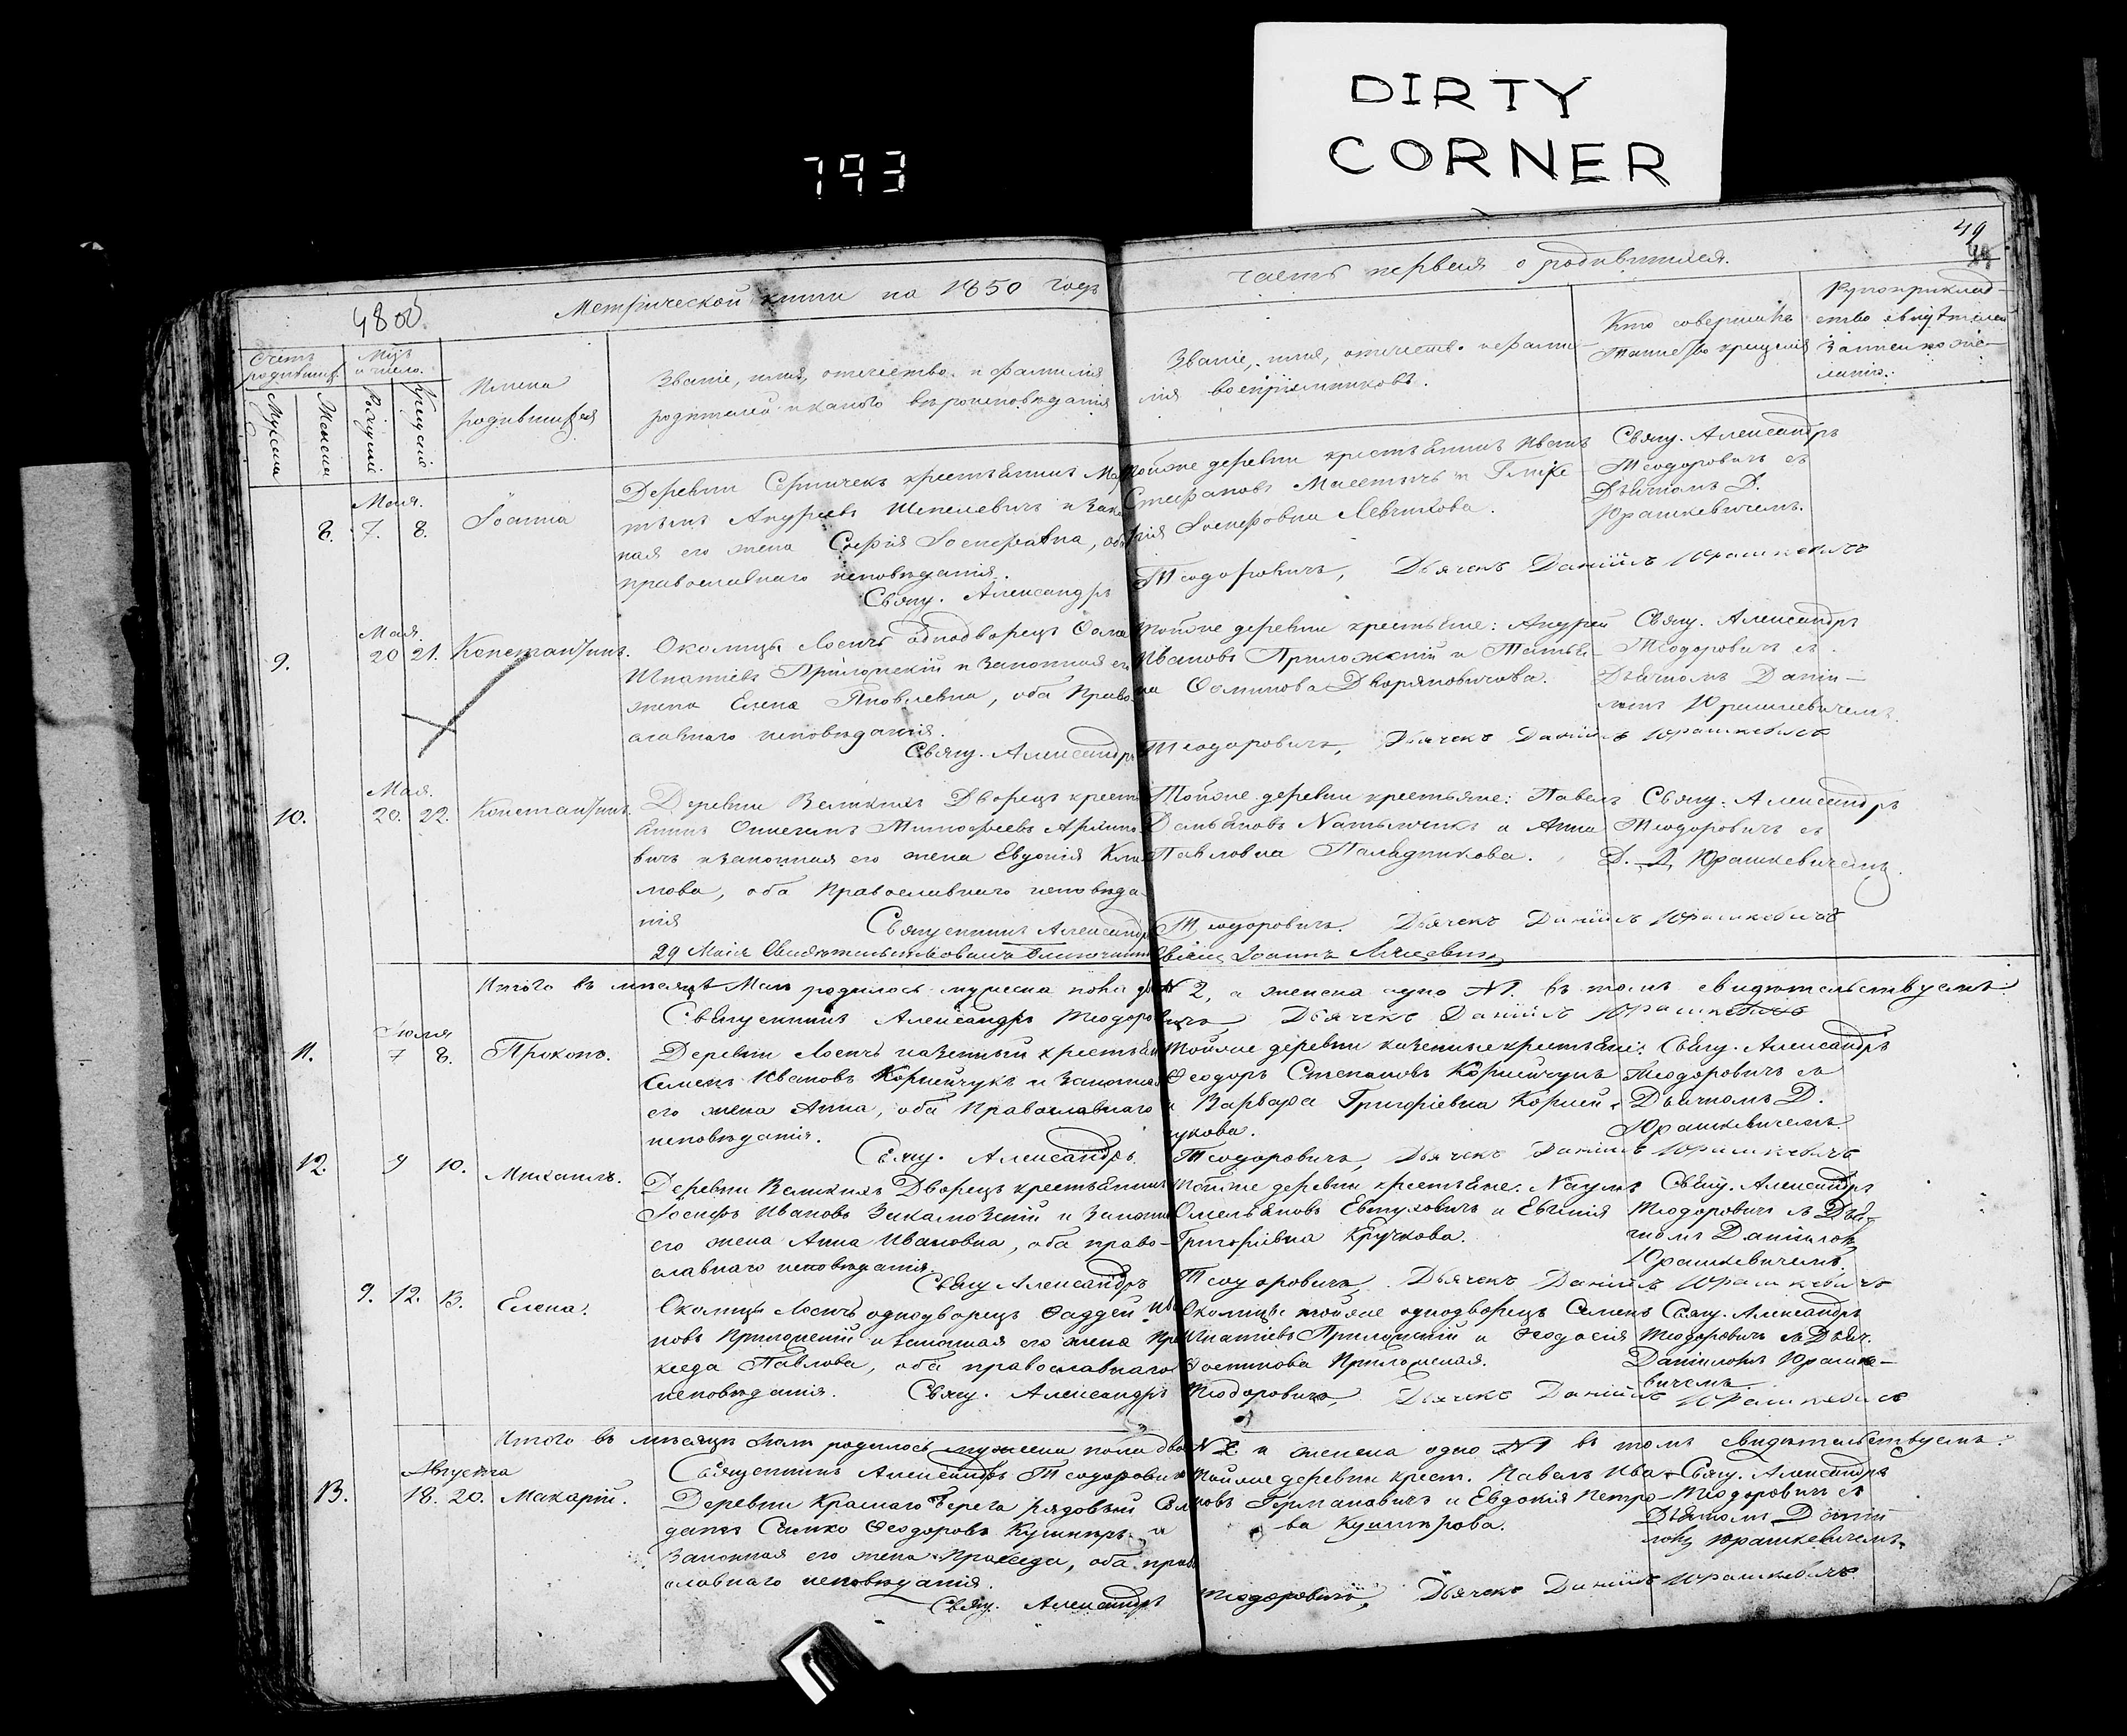 DIRTY
CORNER
793
49
480б.
Метрической книги на 1850 годъ
часть первая о родившихся.
Счетъ родившихся.
Мцъ и число.
Мужеска
Женска
Рожденія
Крещенія
Имена
родившихся
Званіе, имя, отчество и фамилія
родителей и какого вѣроисповѣданія
Званіе, имя, отчество и фами-
лія воспріемниковъ.
Кто совершалъ
таинство крещенія
Рукоприклад-
ство свидѣтелей
записи по же-
ланію.
Мая.
8. 7. 8. Іоанна
Деревни крестьянинъ
Андреевъ Шпелевичъ и закон
ная его жена Софія Іосифовна, оба
православнаго исповѣданія.
Свящ. Александръ
Тойже деревни крестьянинъ Иванъ
Стефановъ и
Іосифовна Левчикова.
Теодоровичъ, Дьячекъ Даніилъ Юрашкевичъ
Свящ. Александръ
Теодоровичъ съ
Дьячкомъ Д.
Юрашкевичемъ.
Мая.
9. 20 21. Константинъ.
Околицы Лосичъ однодворецъ Фома
Игнатіевъ Приложскій и законная его
жена Елена Яковлевна, оба право-
славнаго исповѣданія.
Свящ. Александръ
Тойже деревни крестьяне: Андрей
Ивановъ Приложскій и Татья-
на Фоминова Дворяновичова.
Теодоровичъ, Дьячекъ Даніилъ Юрашкевичъ
Свящ. Александръ
Теодоровичъ съ
Дьячкомъ Даніи-
ломъ Юрашкевичемъ.
Мая.
10. 20. 22. Константинъ.
Деревни Великихъ Дворецъ кресть
янинъ Тимофеевъ
вичъ и законная его жена Евдокія Кли
мова, оба православнаго исповѣда-
нія
Священникъ Александръ
29 Маія Свидѣтельствовалъ
Тойже деревни крестьяне: Павелъ
Демьяновъ и Анна
Павловна Паладникова.
Теодоровичъ. Дьячекъ Даніилъ Юрашкевичъ
Іоаннъ
Свящ. Александръ
Теодоровичъ съ
Д. Д. Юрашкевичемъ.
Итого въ мѣсяцѣ Маѣ родилось мужеска пола два № 2, а женска одно № 1. въ томъ свидѣтельствуемъ.
Священникъ Александръ Теодоровичъ Дьячекъ Даніилъ Юрашкевичъ
Іюля
11. 7 8. Прокопъ.
Деревни Лосичъ казенный крестьян
Семенъ Ивановъ Корнейчукъ и законная
его жена Анна, оба православнаго
исповѣданія.
Свящ. Александръ
Тойже деревни казенные крестьяне:
Феодоръ Степановъ Корнейчукъ
и Варвара Григоріевна Корней-
чукова.
Теодоровичъ, Дьячекъ Даніилъ Юрашкевичъ
Свящ. Александръ
Теодоровичъ съ
Дьячкомъ Д.
Юрашкевичемъ.
12. 9 10. Михаилъ.
Деревни Великихъ Дворецъ крестьянинъ
Іосифъ Ивановъ и законная
его жена Анна Ивановна, оба право-
славнаго исповѣданія.
Свящ Александръ
Тойже деревни крестьяне. Наумъ
Омельяновъ Евтуховичъ и Евгенія
Григоріевна Кручкова.
Теодоровичъ. Дьячекъ Даніилъ Юрашкевичъ
Свящ. Александръ
Теодоровичъ съ Дья-
чкомъ Даніиломъ
Юрашкевичемъ.
9. 12. 13. Елена.
Околицы Лосичъ однодворецъ Фаддей Ива
новъ Приложскій и законная его жена Пра
кседа Павлова, оба православнаго
исповѣданія. Свящ. Александръ
Околицы тойже однодворецъ Семенъ
Игнатіевъ Приложскій и Феодосія
Приложская.
Теодоровичъ, Дьячекъ Даніилъ Юрашкевичъ
Свящ. Александръ
Теодоровичъ съ Дьяч.
Даніиломъ Юрашке-
вичемъ
Итого въ мѣсяцѣ родилось мужеска пола два № 2. и женска одно № 1 въ томъ свидѣтельствуемъ.
Священникъ Александръ Теодоровичъ
Августа
13. 18. 20. Макарій.
Деревни Краснаго Берега рядовый Сол
датъ Феодоровъ Кушниръ и
законная его жена Пракседа, оба право
славнаго исповѣданія.
Свящ. Александръ
Тойже деревни крест. Павелъ Ива-
новъ Германовичъ и Евдокія Петро-
ва Кушнерова.
Теодоровичъ, Дьячекъ Даніилъ Юрашкевичъ
Свящ. Александръ
Теодоровичъ съ
Дьячкомъ Даніи
ломъ Юрашкевичемъ.